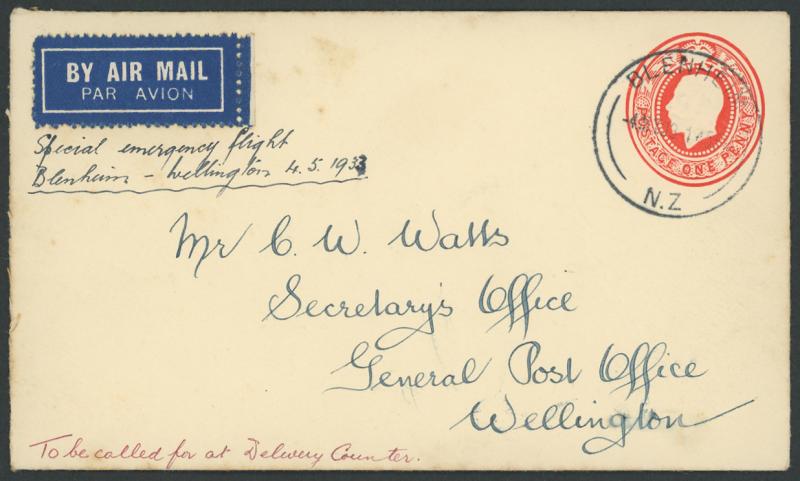 BY AIR MAIL
PAR AVION
Special emergency flight
Blenheim - Wellington 4.5.1933
BLENHEIM
N.Z
POSTAGE ONE PENNY
Mr C. W. Watts
Secretary's Office
General Post Office
Wellington
To be called for at Delivery Counter.